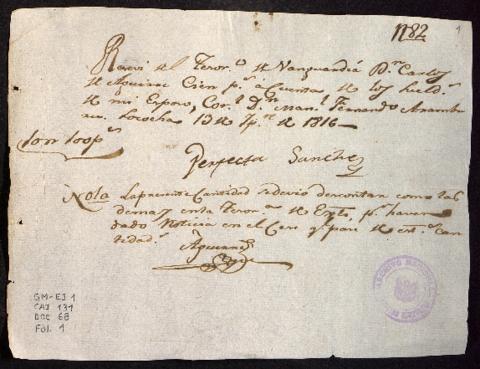 1182
1
Recivi del Tesor.o de Vanguardia D.n Carlos
de Aguirre Cien p.s à Cuenta de los Sueld.s
de mi Esposo, Cor.l D.n Man.l Fernando Aramb
uru. 13 de 1816
Son 100 p.s
Perfecta Sanchez
Nota La presente Cantidad se devio descontar como las
demas en la Tesor.a de Exto. p.r haver
dado Noticia en el Cese y para de est.a Can
tidad.
Aguirre
GM-EJ 1
CAJ 131
DOC 68
Fol. 1
ARCHIVO NACIONAL